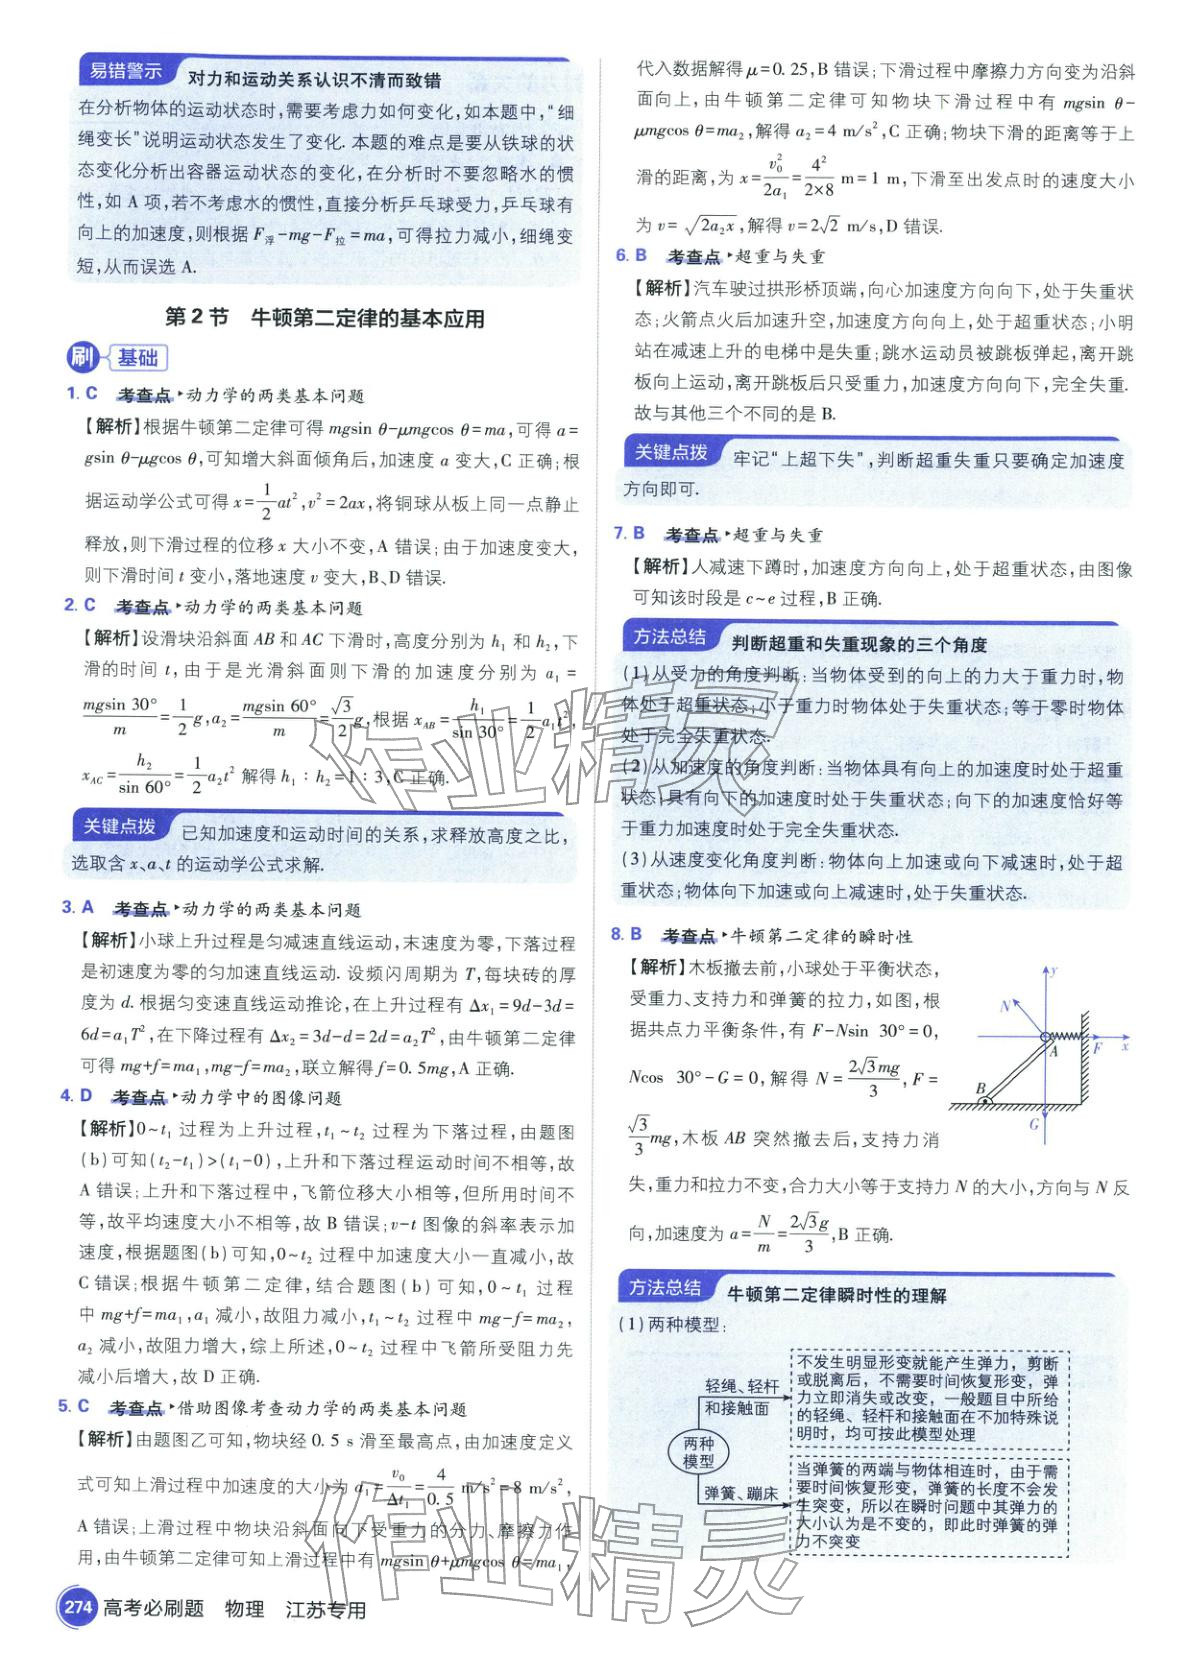 易错警示 对力和运动关系认识不清而致错
在分析物体的运动状态时,需要考虑力如何变化,如本题中,“细
绳变长”说明运动状态发生了变化. 本题的难点是要从铁球的状
态变化分析出容器运动状态的变化,在分析时不要忽略水的惯
性,如 A 项,若不考虑水的惯性,直接分析乒乓球受力,乒乓球有
向上的加速度,则根据 F浮-mg-F拉=ma,可得拉力减小,细绳变
短,从而误选 A.
第2节 牛顿第二定律的基本应用
刷 基础
1. C 考查点 动力学的两类基本问题
【解析】根据牛顿第二定律可得 mgsin θ-μmgcos θ=ma,可得 a=
gsin θ-μgcos θ,可知增大斜面倾角后,加速度 a 变大,C 正确;根
据运动学公式可得 x=1/2at²,v²=2ax,将铜球从板上同一点静止
释放,则下滑过程的位移 x 大小不变,A 错误;由于加速度变大,
则下滑时间 t 变小,落地速度 v 变大,B、D 错误.
2. C 考查点 动力学的两类基本问题
【解析】设滑块沿斜面 AB 和 AC 下滑时,高度分别为 h₁ 和 h₂,下
滑的时间 t,由于是光滑斜面则下滑的加速度分别为 a₁=
mgsin 30°/m=1/2g,a₂=mgsin 60°/m=√3/2g,根据 x_AB=h₁/sin 30°=1/2a₁t²,
x_AC=h₂/sin 60°=1/2a₂t² 解得 h₁∶h₂=1∶3,C 正确.
关键点拨 已知加速度和运动时间的关系,求释放高度之比,
选取含 x、a、t 的运动学公式求解.
3. A 考查点 动力学的两类基本问题
【解析】小球上升过程是匀减速直线运动,末速度为零,下落过程
是初速度为零的匀加速直线运动. 设频闪周期为 T,每块砖的厚
度为 d. 根据匀变速直线运动推论,在上升过程有 Δx₁=9d-3d=
6d=a₁T²,在下降过程有 Δx₂=3d-d=2d=a₂T²,由牛顿第二定律
可得 mg+f=ma₁,mg-f=ma₂,联立解得 f=0.5mg,A 正确.
4. D 考查点 动力学中的图像问题
【解析】0~t₁ 过程为上升过程,t₁~t₂ 过程为下落过程,由题图
(b)可知(t₂-t₁)>(t₁-0),上升和下落过程运动时间不相等,故
A 错误;上升和下落过程中,飞箭位移大小相等,但所用时间不
等,故平均速度大小不相等,故 B 错误;v-t 图像的斜率表示加
速度,根据题图(b)可知,0~t₂ 过程中加速度大小一直减小,故
C 错误;根据牛顿第二定律,结合题图(b)可知,0~t₁ 过程
中 mg+f=ma₁,a₁ 减小,故阻力减小,t₁~t₂ 过程中 mg-f=ma₂,
a₂ 减小,故阻力增大,综上所述,0~t₂ 过程中飞箭所受阻力先
减小后增大,故 D 正确.
5. C 考查点 借助图像考查动力学的两类基本问题
【解析】由题图乙可知,物块经 0.5 s 滑至最高点,由加速度定义
式可知上滑过程中加速度的大小为 a₁=v₀/Δt₁=4/0.5 m/s²=8 m/s²,
A 错误;上滑过程中物块沿斜面向下受重力的分力、摩擦力作
用,由牛顿第二定律可知上滑过程中有 mgsin θ+μmgcos θ=ma₁,
274 高考必刷题 物理 江苏专用
代入数据解得 μ=0.25,B 错误;下滑过程中摩擦力方向变为沿斜
面向上,由牛顿第二定律可知物块下滑过程中有 mgsin θ-
μmgcos θ=ma₂,解得 a₂=4 m/s²,C 正确;物块下滑的距离等于上
滑的距离,为 x=v₀²/2a₁=4²/2×8 m=1 m,下滑至出发点时的速度大小
为 v=√2a₂x,解得 v=2√2 m/s,D 错误.
6. B 考查点 超重与失重
【解析】汽车驶过拱形桥顶端,向心加速度方向向下,处于失重状
态;火箭点火后加速升空,加速度方向向上,处于超重状态;小明
站在减速上升的电梯中是失重;跳水运动员被跳板弹起,离开跳
板向上运动,离开跳板后只受重力,加速度方向向下,完全失重.
故与其他三个不同的是 B.
关键点拨 牢记“上超下失”,判断超重失重只要确定加速度
方向即可.
7. B 考查点 超重与失重
【解析】人减速下蹲时,加速度方向向上,处于超重状态,由图像
可知该时段是 c~e 过程,B 正确.
方法总结 判断超重和失重现象的三个角度
(1)从受力的角度判断:当物体受到的向上的力大于重力时,物
体处于超重状态;小于重力时物体处于失重状态;等于零时物体
处于完全失重状态.
(2)从加速度的角度判断:当物体具有向上的加速度时处于超重
状态;具有向下的加速度时处于失重状态;向下的加速度恰好等
于重力加速度时处于完全失重状态.
(3)从速度变化角度判断:物体向上加速或向下减速时,处于超
重状态;物体向下加速或向上减速时,处于失重状态.
8. B 考查点 牛顿第二定律的瞬时性
【解析】木板撤去前,小球处于平衡状态,
受重力、支持力和弹簧的拉力,如图,根
据共点力平衡条件,有 F-Nsin 30°=0,
Ncos 30°-G=0,解得 N=2√3mg/3,F=
√3/3mg,木板 AB 突然撤去后,支持力消
失,重力和拉力不变,合力大小等于支持力 N 的大小,方向与 N 反
向,加速度为 a=N/m=2√3g/3,B 正确.
y
N
A
F
x
B
G
方法总结 牛顿第二定律瞬时性的理解
(1)两种模型:
两种
模型
轻绳、轻杆
和接触面
不发生明显形变就能产生弹力，剪断
或脱离后，不需要时间恢复形变，弹
力立即消失或改变，一般题目中所给
的轻绳、轻杆和接触面在不加特殊说
明时，均可按此模型处理
弹簧、蹦床
当弹簧的两端与物体相连时，由于需
要时间恢复形变，弹簧的长度不会发
生突变，所以在瞬时问题中其弹力的
大小认为是不变的，即此时弹簧的弹
力不突变
作业精灵
作业精灵